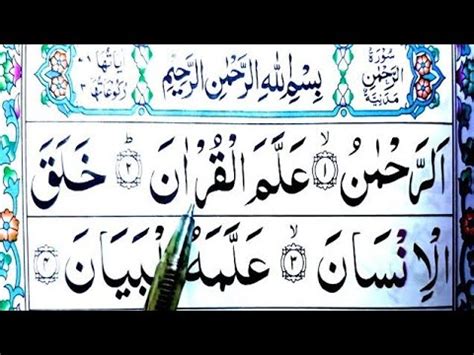 سُوْرَةُ
الرَّحْمٰنِ
مَدَنِيَّةٌ
بِسْمِ اللهِ الرَّحْمٰنِ الرَّحِيْمِ
اٰيَاتُهَا ٧٨
رُكُوْعَاتُهَا ٣
اَلرَّحْمٰنُ ۙ ١ عَلَّمَ الْقُرْاٰنَ ؕ ٢ خَلَقَ
الْاِنْسَانَ ۙ ٣ عَلَّمَهُ الْبَيَانَ ٤